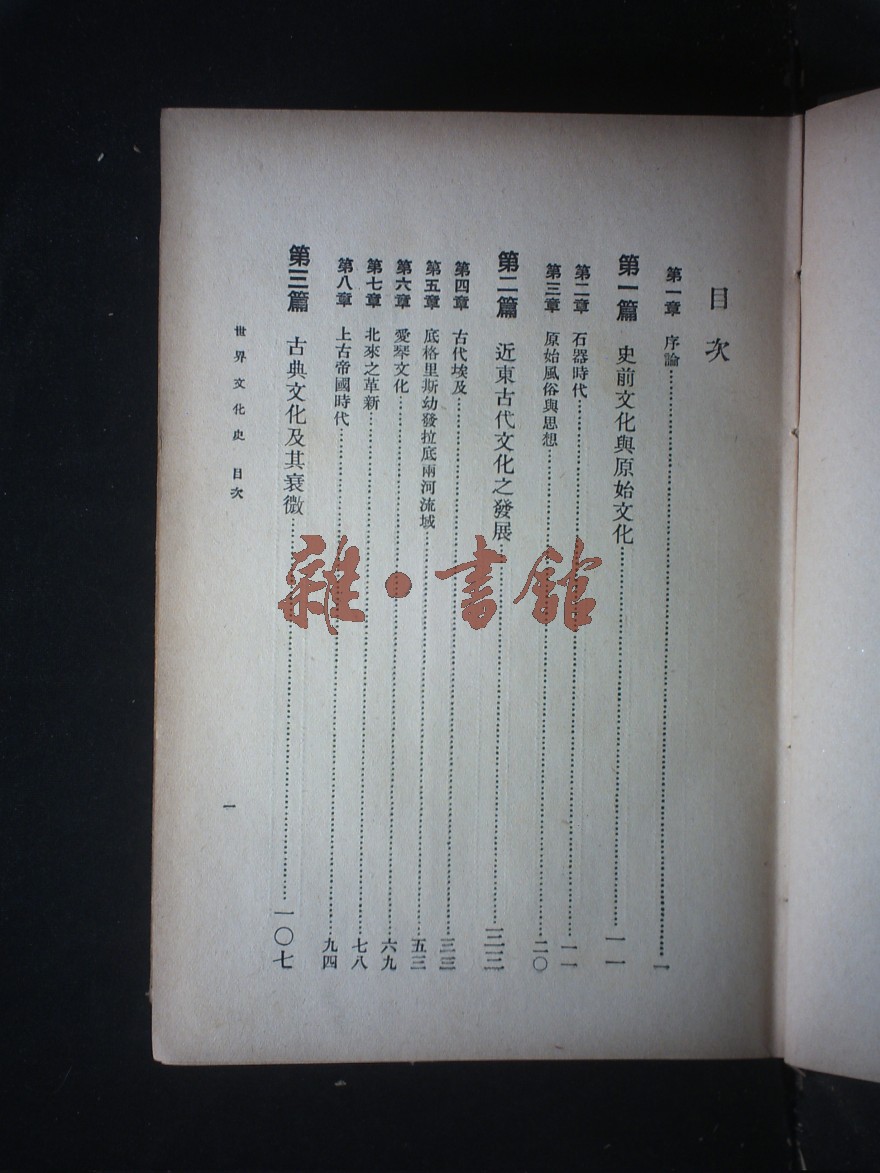 目次
第一章 序論……一
第一篇 史前文化與原始文化……一一
第二章 石器時代……一一
第三章 原始風俗與思想……二〇
第二篇 近東古代文化之發展……三三
第四章 古代埃及……三三
第五章 底格里斯幼發拉底兩河流域……五三
第六章 愛琴文化……六九
第七章 北來之革新……七八
第八章 上古帝國時代……九四
第三篇 古典文化及其衰微……一〇七
世界文化史 目次
一
雜·書館